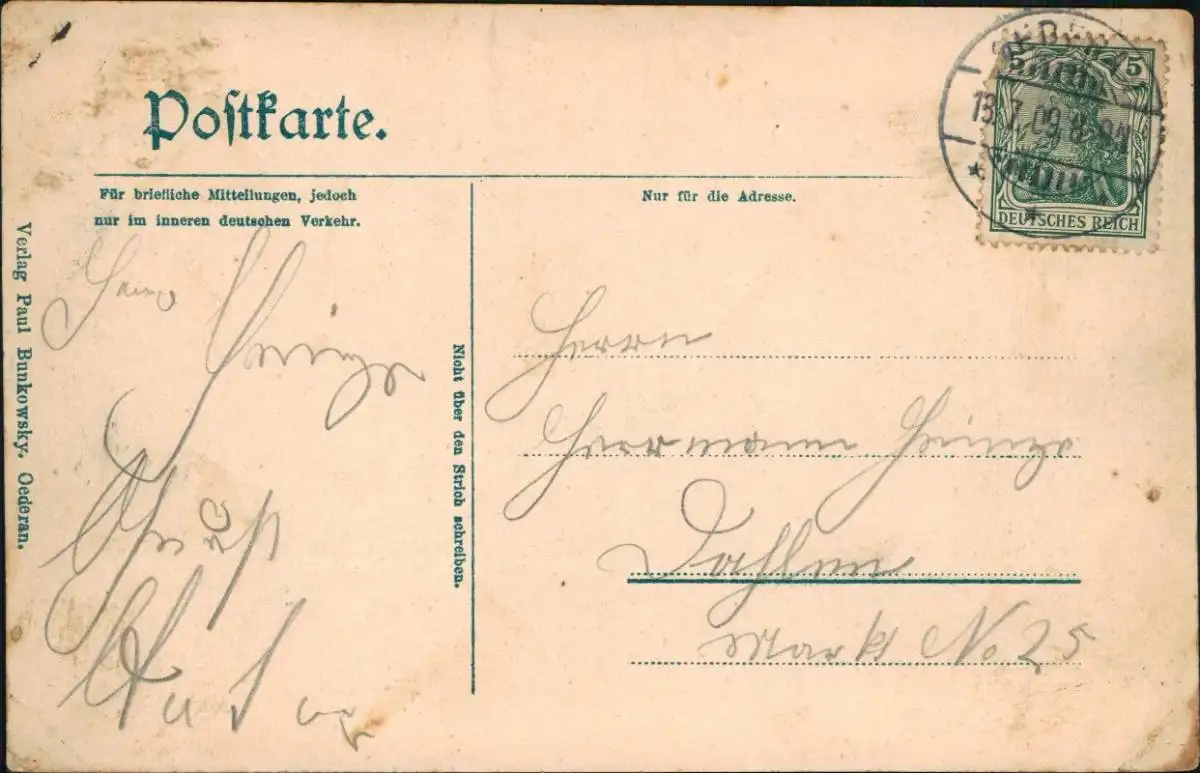 Postkarte.
Für briefliche Mitteilungen, jedoch
nur im inneren deutschen Verkehr.
Nur für die Adresse.
5 5
DEUTSCHES REICH
13.7.09. 8-9N
Verlag Paul Bunkowsky, Oederan.
Nicht über den Strich schreiben.
Heinze
Gruß
Herrn
Herrmann Heinze
Dahlen
Markt No 25